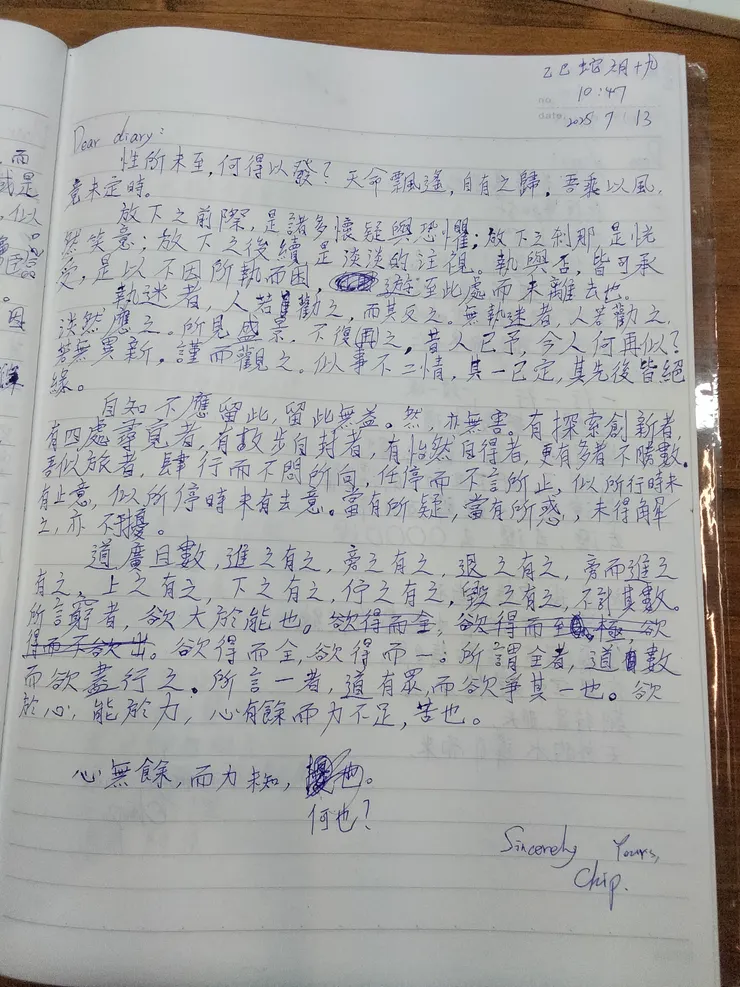 乙巳蛇月十九
10:47
2025 7 13
Dear diary:
性所未至,何得以發?天命飄遙,自有之歸。吾乘以風,
竟未定時。
放下之前際,是諸多懷疑與恐懼;放下之刹那,是恍
然笑意;放下之後續,是淡淡的注視。執與否,皆可承
受,是以不因所執而困,遊至此處而未離去也。
執迷者,人若勸之,而其反之。無執迷者,人若勸之,
淡然應之。所見盛景,不復(再)之,昔人已予,今人何再似?
若無異新,謹而觀之。似事不二情,其一已定,其先後皆絕
緣。
自知不應留此,留此無益。然,亦無害。有探索創新者,
有四處尋覓者,有故步自封者,有怡然自得者,更有多者不勝數。
吾似旅者,肆行而不問所向,任停而不言所止,似所行時未
有止意,似所停時未有去意。當有所疑,當有所惑,未得解
之,亦不擾。
道廣且數,進之有之,旁之有之,退之有之,旁而進之
有之,上之有之,下之有之,停之有之,毀之有之,不計其數。
所言窮者,欲大於能也。欲得而全,欲得而至極,欲
得而不欲出。欲得而全,欲得而一。所謂全者,道數
而欲盡行之。所言一者,道有眾,而欲爭其一也。欲
於心,能於力,心有餘而力不足,苦也。
心無餘,而力未知,
何也?
Sincerely Yours,
Chip.
而
或是
似
因